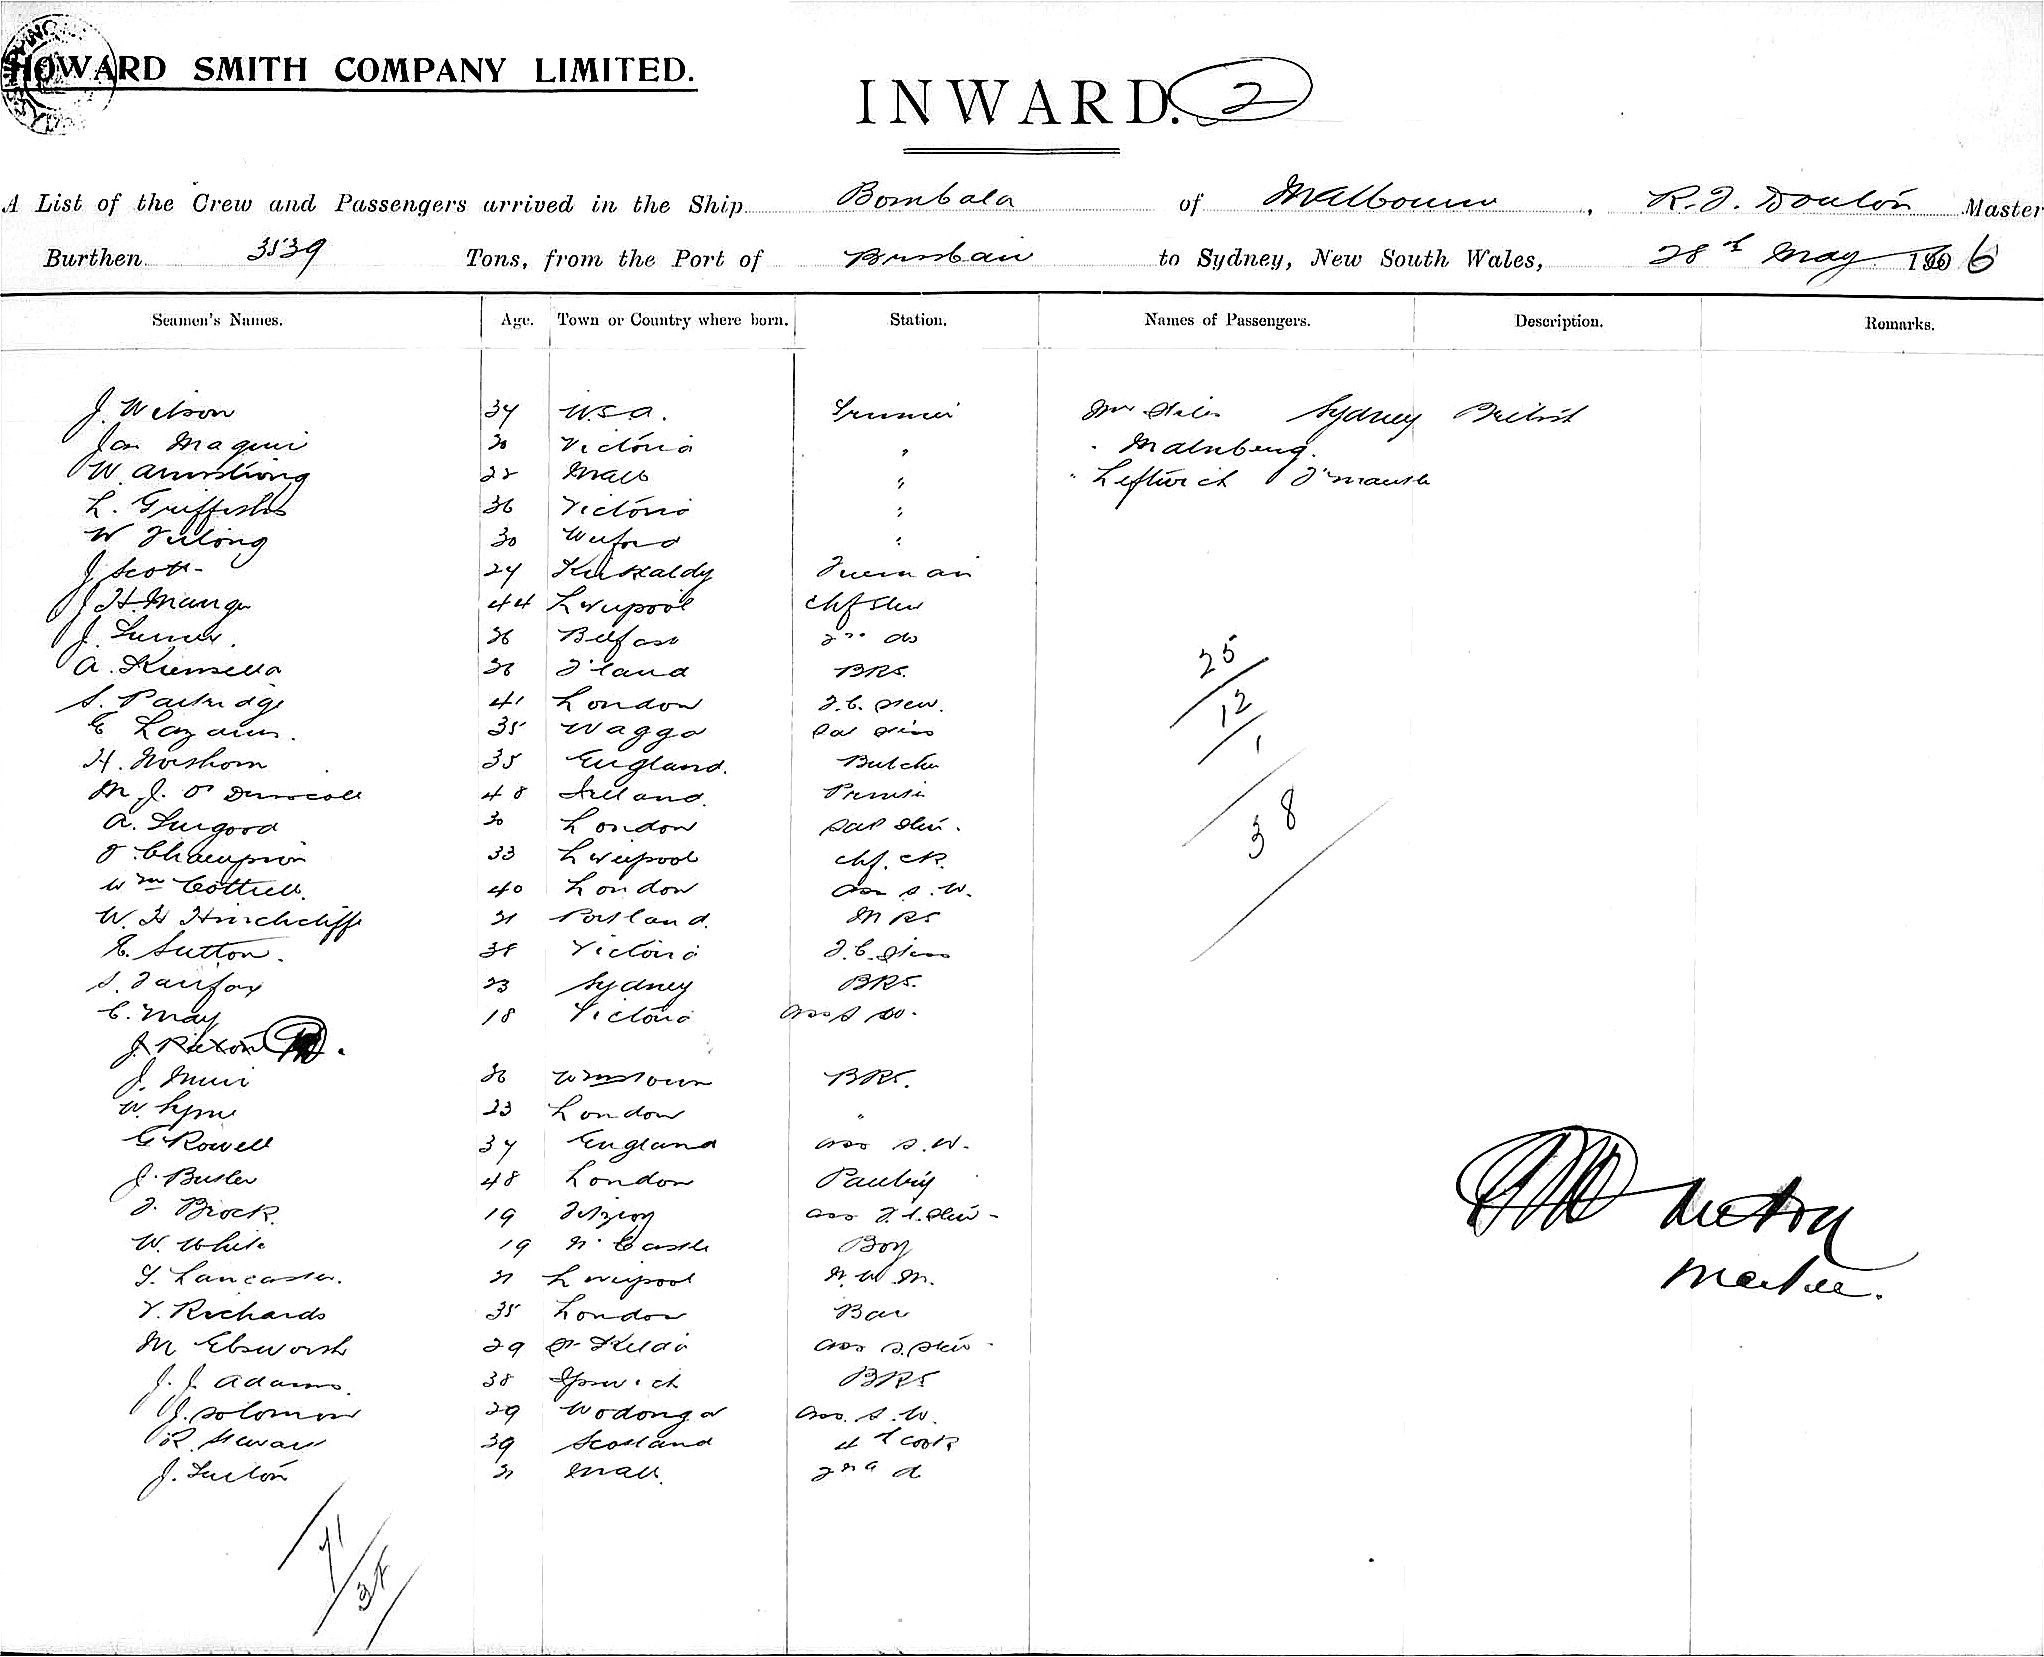 HOWARD SMITH COMPANY LIMITED.
INWARD. 2
A List of the Crew and Passengers arrived in the Ship Bombala of Melbourne, R. J. Master
Burthen 3539 Tons, from the Port of Brisbane to Sydney, New South Wales, 28th May 1906
Seamen's Names. Age. Town or Country where born. Station. Names of Passengers. Description. Remarks.
J. Wilson 34 U.S.A. Trimmer Mr Sydney British
Jas Maguire 30 Victoria " " Malmberg.
W. Armstrong Melb " " Leftwich
L. Griffiths 36 Victoria "
W 30 Wexford "
J Scott 24 Kirkaldy Fireman
J H. Mauger 44 Liverpool Chf Stew
J. Belfast 2nd do
A. Kinsella BRS.
S. Partridge 41 London F.C. Stew.
E Lazarus. 35 Wagga
H. Horshom 35 England. Butcher
M. J. O'Driscoll 48 Ireland.
A. Turgood 30 London Sal Stew.
J. Champion 33 Liverpool chf. ck.
Wm Cottrell. 40 London ass S.W.
W. H Hinchcliffe 31 Portland. M RS
E. Sutton. 38 Victoria F.C. Stew
S. Fairfax 23 Sydney BRS.
C. May 18 Victoria ass S W.
J. Rixon
J. Muir 36 Wmstown BRS.
W. Lyne 23 London "
G Rowell 34 England ass S.W.
J. Butler 48 London Pantry
J. Brock. 19 Fitzroy
W. White 19 N'Castle Boy
T. Lancaster. 31 Liverpool N.W.M.
V. Richards 35 London Bar
M Ebsworth 29 St Kilda ass S. Stew
J. J. Adams. 38 Ipswich BRS
J. Solomon 29 Wodonga ass. S. W.
R. Stewart 39 Scotland 4th Cook
J. 31 Melb. 2nd d
25
12
1
38
Master.